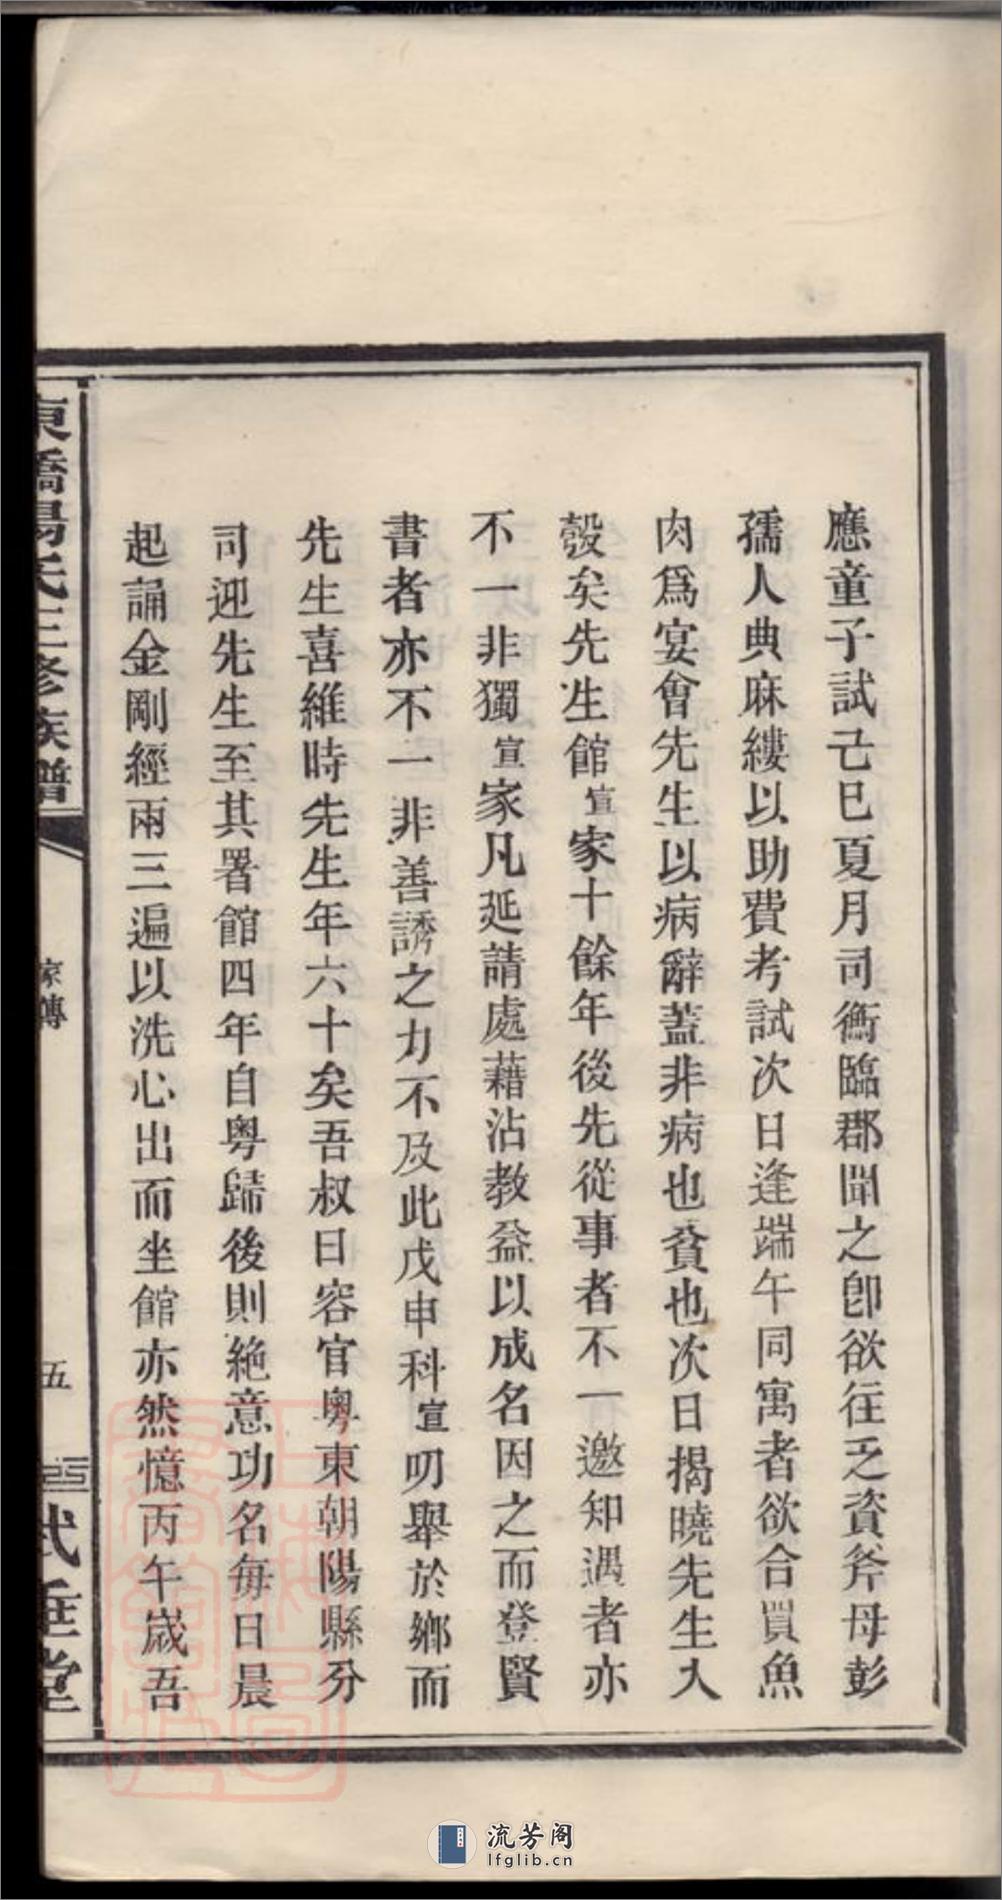 應童子試己巳夏月司衡臨郡聞之卽欲往乏資斧母彭
孺人典麻縷以助費考試次日逢端午同寓者欲合買魚
肉爲宴會先生以病辭蓋非病也貧也次日揭曉先生入
彀矣先生館宣家十餘年後先從事者不一邀知遇者亦
不一非獨宣家凡延請處藉沾教益以成名因之而登賢
書者亦不一非善誘之力不及此戊申科宣叨舉於鄉而
先生喜維時先生年六十矣吾叔日容官粵東朝陽縣分
司迎先生至其署館四年自粵歸後則絶意功名每日晨
起誦金剛經兩三遍以洗心出而坐館亦然憶丙午歲吾
東橋易氏三修族譜
家傳
五
堂
流芳阁
lfglib.cn